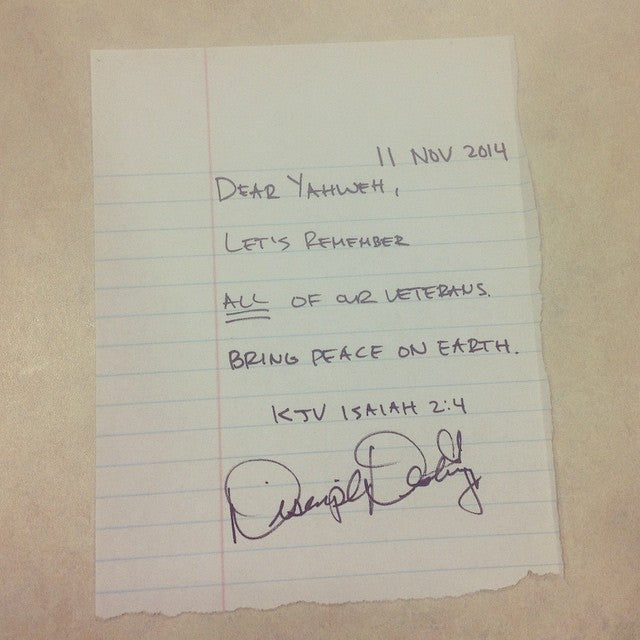 11 NOV 2014
DEAR YAHWEH,
LET'S REMEMBER
ALL OF OUR VETERANS.
BRING PEACE ON EARTH.
KJV ISAIAH 2:4